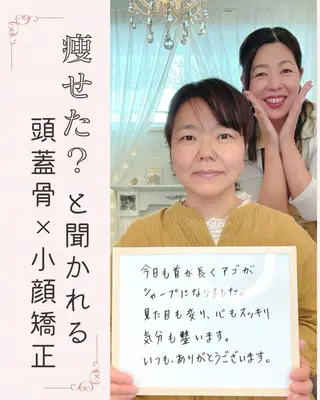 痩せた？と聞かれる
頭蓋骨×小顔矯正
今日も首が長くアゴが
シャープになりました。
見た目も変り、心もスッキリ
気分も整います。
いつも、ありがとうございます。